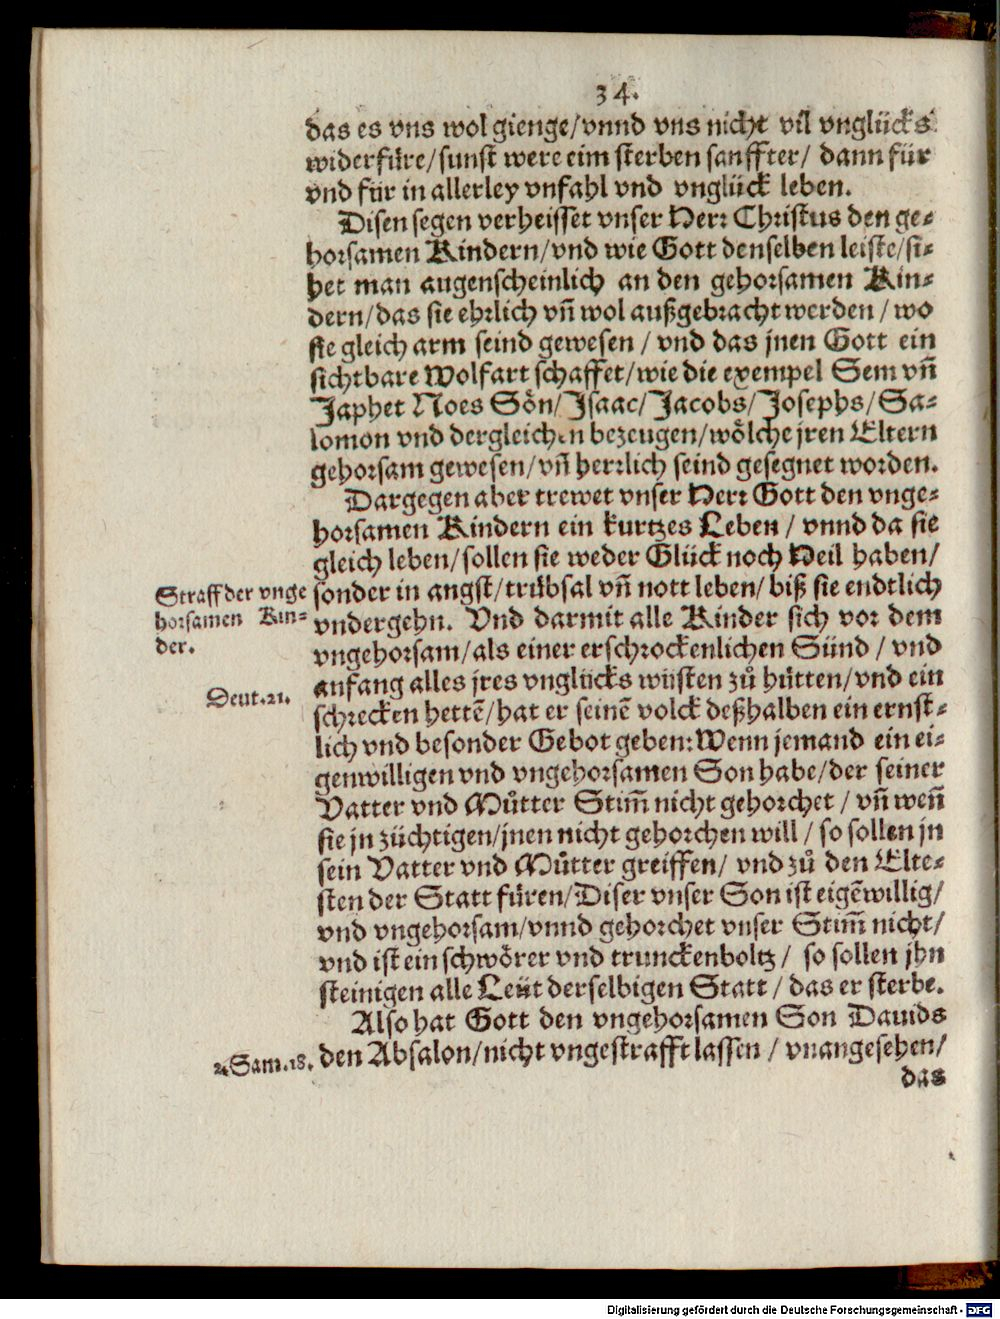 34.
das es vns wol gienge/vnnd vns nicht vil vnglücks
widerfüre/sunst were eim sterben sanffter/ dann für
vnd für in allerley vnfahl vnd vnglück leben.
Disen segen verheisset vnser Herr Christus den ge-
horsamen Kindern/vnd wie Gott denselben leiste/si-
het man augenscheinlich an den gehorsamen Kin-
dern/das sie ehrlich vñ wol außgebracht werden/wo
sie gleich arm seind gewesen/ vnd das jnen Gott ein
sichtbare Wolfart schaffet/wie die exempel Sem vñ
Japhet Noes Sön/Isaac/Jacobs/Josephs/Sa-
lomon vnd dergleichen bezeugen/wölche jren Eltern
gehorsam gewesen/vñ herrlich seind gesegnet worden.
Dargegen aber trewet vnser Herr Gott den vnge-
horsamen Kindern ein kurtzes Leben/ vnnd da sie
gleich leben/sollen sie weder Glück noch Heil haben/
Straff der vnge
horsamen Kin-
der.
sonder in angst/trübsal vñ nott leben/ biß sie endtlich
vndergehn. Vnd darmit alle Kinder sich vor dem
vngehorsam/als einer erschrockenlichen Sünd/ vnd
Deut.21.
anfang alles jres vnglücks wüsten zů hütten/vnd ein
schrecken hettē/hat er seinē volck deßhalben ein ernst-
lich vnd besonder Gebot geben: Wenn jemand ein ei-
genwilligen vnd vngehorsamen Son habe/der seiner
Vatter vnd Můtter Stim̄ nicht gehorchet/ vñ weñ
sie jn züchtigen/jnen nicht gehorchen will/ so sollen jn
sein Vatter vnd Můtter greiffen/ vnd zů den Elte-
sten der Statt füren/Diser vnser Son ist eigēwillig/
vnd vngehorsam/vnnd gehorchet vnser Stim̄ nicht/
vnd ist ein schwörer vnd trunckenboltz/ so sollen jhn
steinigen alle Leüt derselbigen Statt/ das er sterbe.
Also hat Gott den vngehorsamen Son Dauids
2.Sam.18.
den Absalon/nicht vngestrafft lassen/ vnangesehen/
das
Digitalisierung gefördert durch die Deutsche Forschungsgemeinschaft - DFG